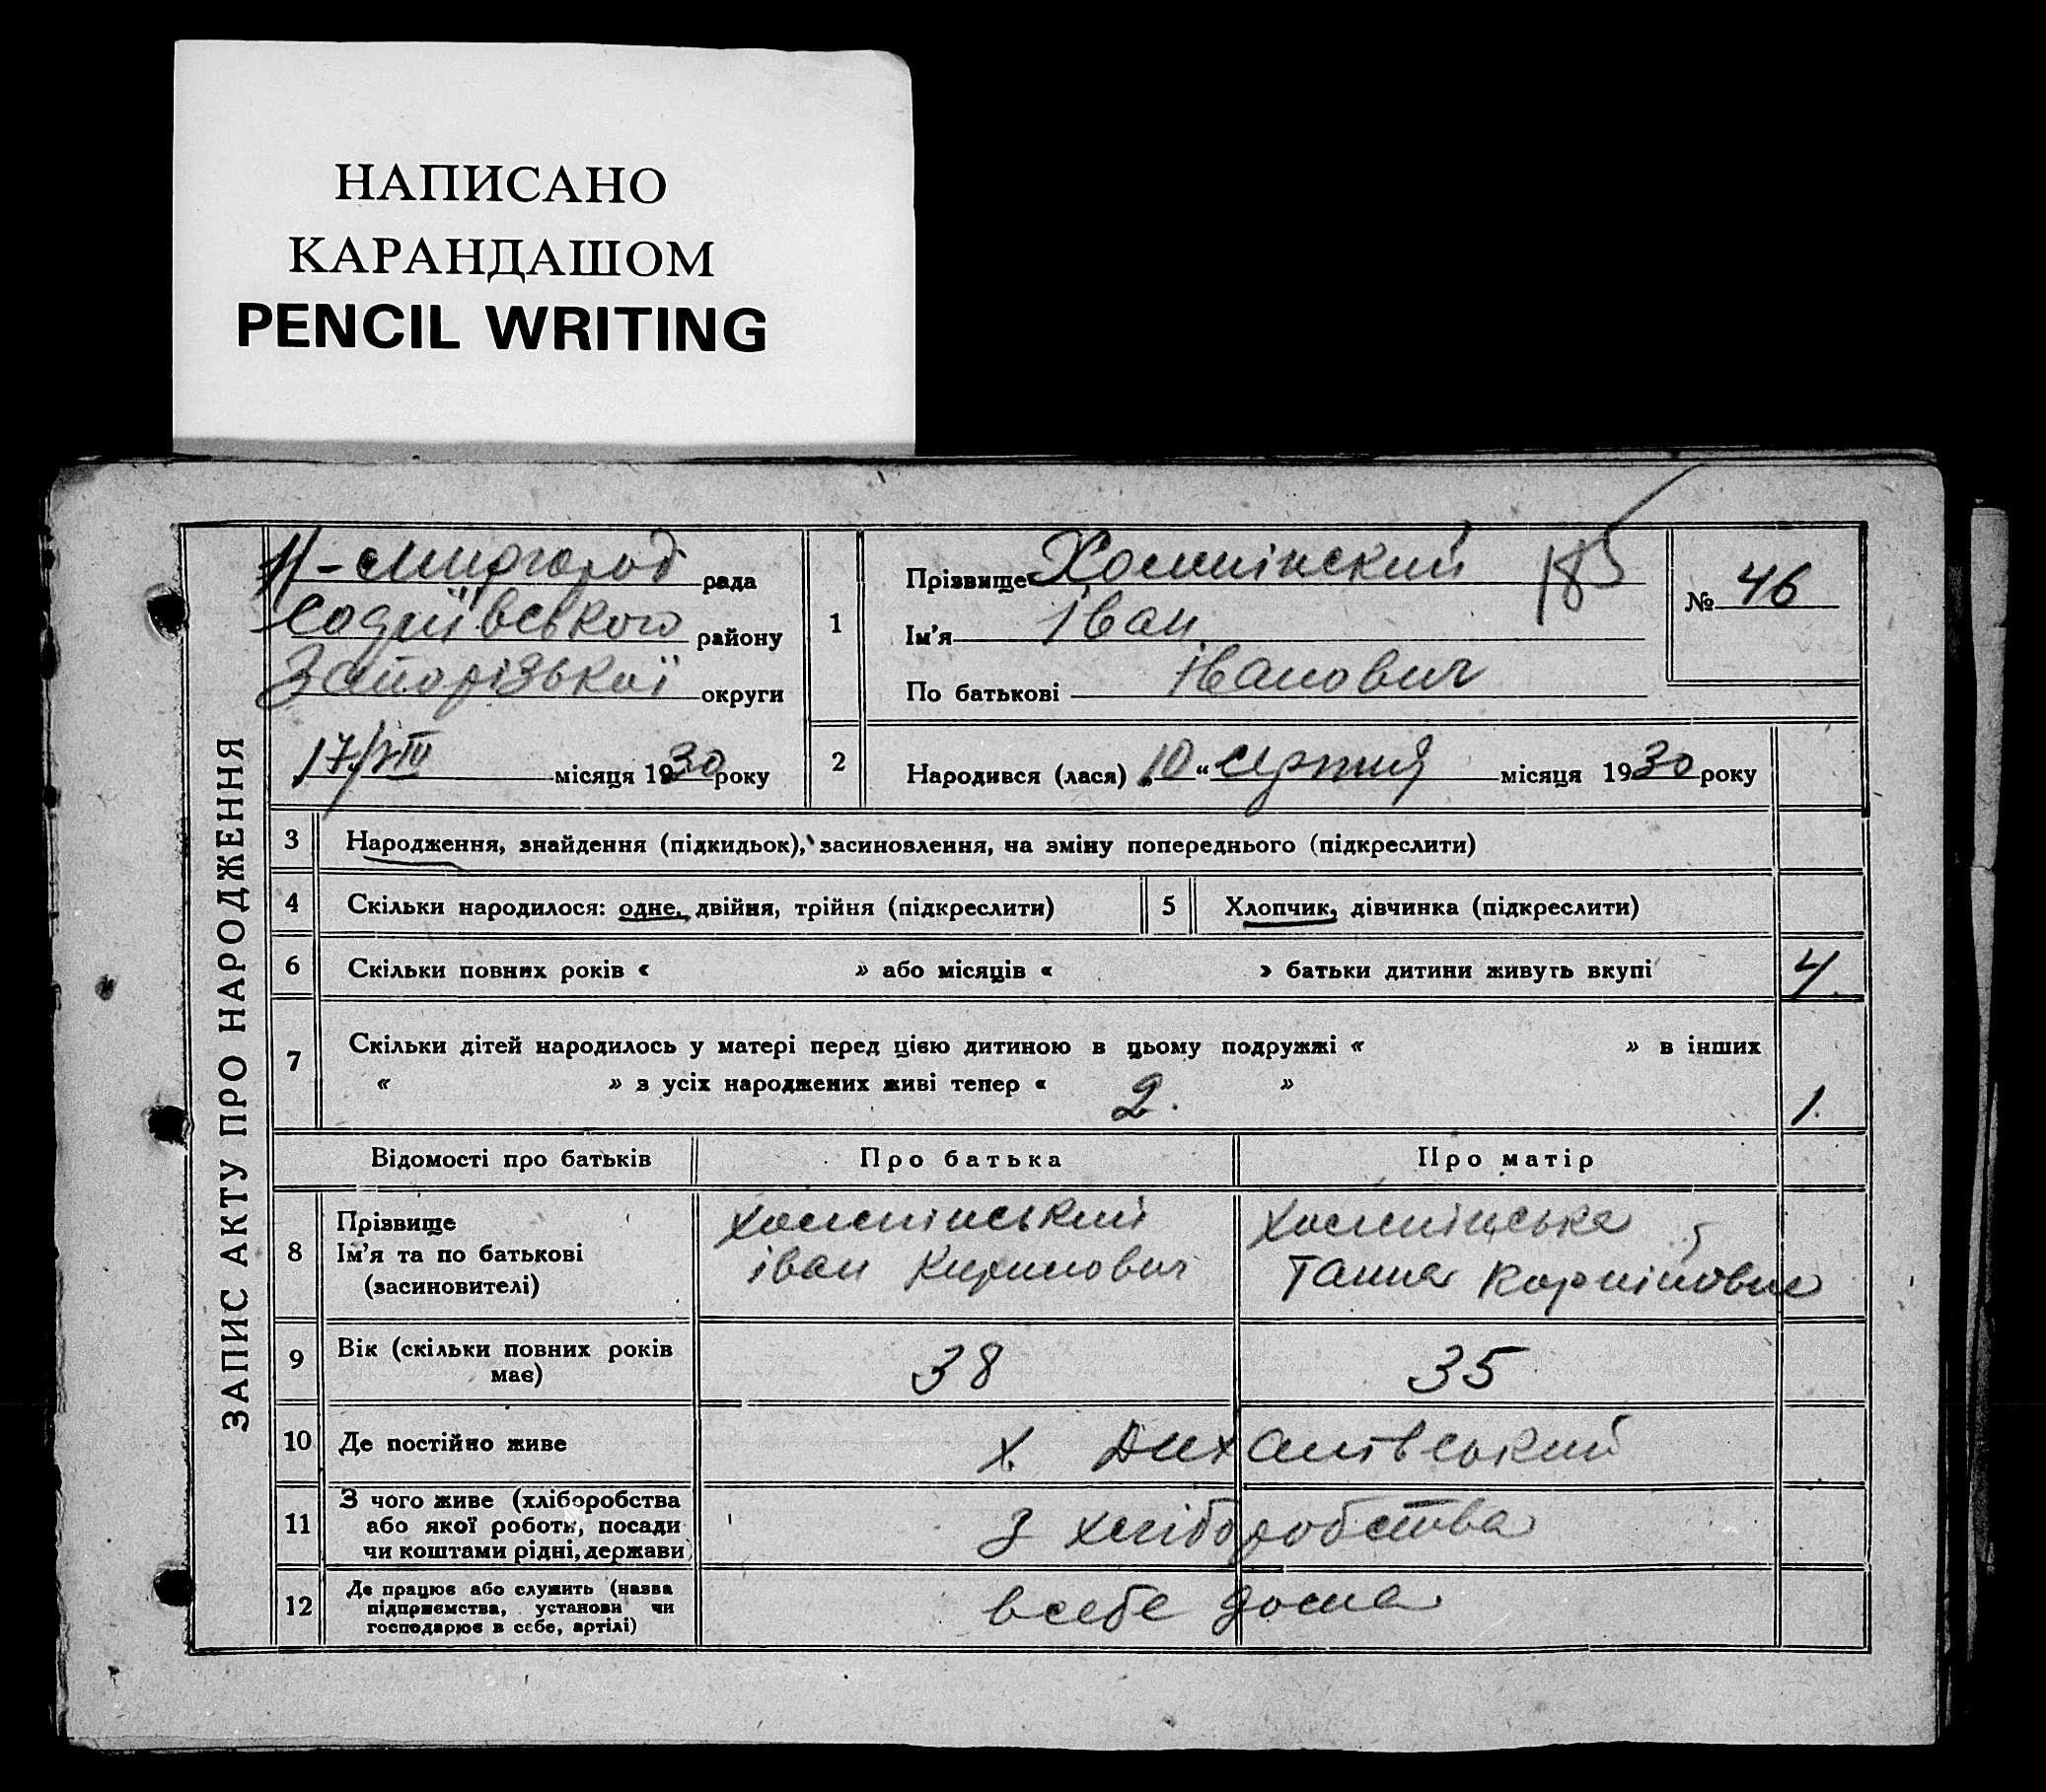 НАПИСАНО
КАРАНДАШОМ
PENCIL WRITING
ЗАПИС АКТУ ПРО НАРОДЖЕННЯ
Н-Миргород рада
Софіївського району
Запорізької округи
17/VIII місяця 1930 року
1
Прізвище Хомпінский 185
Ім'я Іван
По батькові Іванович
№ 46
2
Народився (лася) „10“ серпня місяця 1930 року
3 Народження, знайдення (підкидьок), засиновлення, на зміну попереднього (підкреслити)
4 Скільки народилося: одне, двійня, трійня (підкреслити) 5 Хлопчик, дівчинка (підкреслити)
6 Скільки повних років « » або місяців « » батьки дитини живуть вкупі 4.
7 Скільки дітей народилось у матері перед цією дитиною в цьому подружжі « » в інших
« » з усіх народжених живі тепер « 2. » 1.
Відомості про батьків Про батька Про матір
8 Прізвище
Ім'я та по батькові
(засиновителі)
Хомпінський
Іван
Хомпінська
Ганна Карпіловна
9 Вік (скільки повних років
має) 38 35
10 Де постійно живе х.
11 З чого живе (хліборобства
або якої роботи, посади
чи коштами рідні, держави)
З хліборобства
12 Де працює або служить (назва
підприємства, установи чи
господарює в себе, артілі)
в себе дома